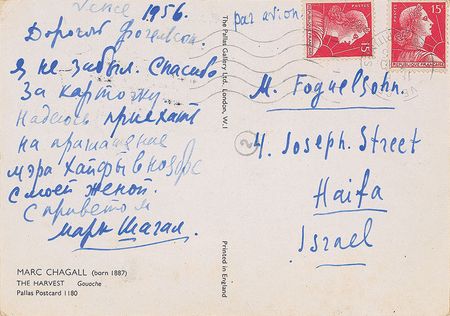 Vence 1956.
Дорогой Фогельсон.
Я не забыл. Спасибо
за карточку.
Надеюсь приехать
на приглашение
мэра Хайфы в ноябре
с моей женой.
С приветом
Марк Шагал.
MARC CHAGALL (born 1887)
THE HARVEST Gouache
Pallas Postcard 1180
The Pallas Gallery Ltd., London, W.1
Printed in England
par avion
15F
POSTES
REPUBLIQUE FRANÇAISE
15F
POSTES
REPUBLIQUE FRANÇAISE
M. Foguelsohn.
4. Joseph. Street
2
Haifa
Israel